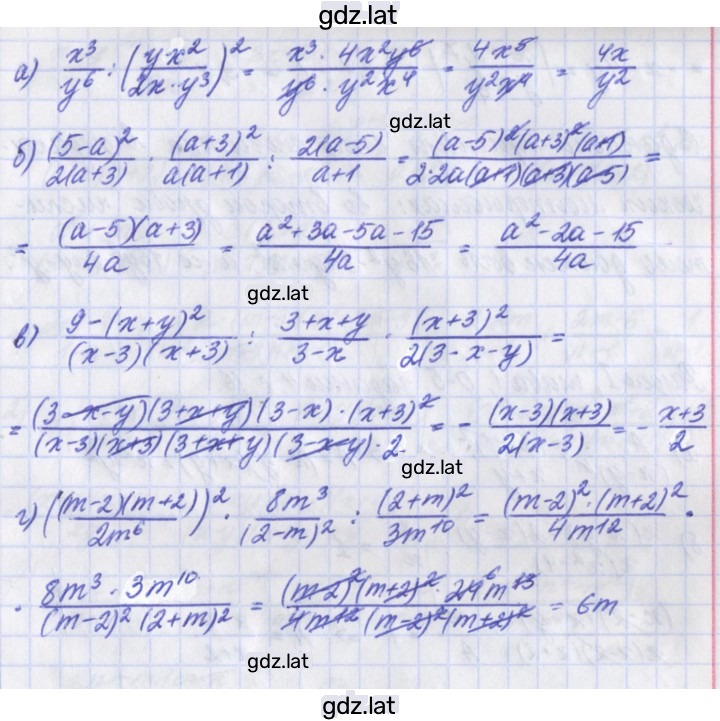 gdz.lat
а) x³/y⁶ : (yx²/2x·y³)² = x³·4x²y⁶/y⁶·y²x⁴ = 4x⁵/y²x⁴ = 4x/y²
gdz.lat
б) (5-a)²/2(a+3) · (a+3)²/a(a+1) : 2(a-5)/a+1 = (a-5)²(a+3)²(a+1)/2·2a(a+1)(a+3)(a-5) =
= (a-5)(a+3)/4a = a²+3a-5a-15/4a = a²-2a-15/4a
gdz.lat
в) 9-(x+y)²/(x-3)(x+3) : 3+x+y/3-x · (x+3)²/2(3-x-y) =
= (3-x-y)(3+x+y)(3-x)·(x+3)²/(x-3)(x+3)(3+x+y)(3-x-y)·2 = - (x-3)(x+3)/2(x-3) = - x+3/2
gdz.lat
г) ((m-2)(m+2)/2m⁶)² · 8m³/(2-m)² : (2+m)²/3m¹⁰ = (m-2)²·(m+2)²/4m¹² ·
· 8m³·3m¹⁰/(m-2)²(2+m)² = (m-2)²(m+2)²·24⁶m¹³/4m¹²(m-2)²(m+2)² = 6m
gdz.lat
gdz.lat